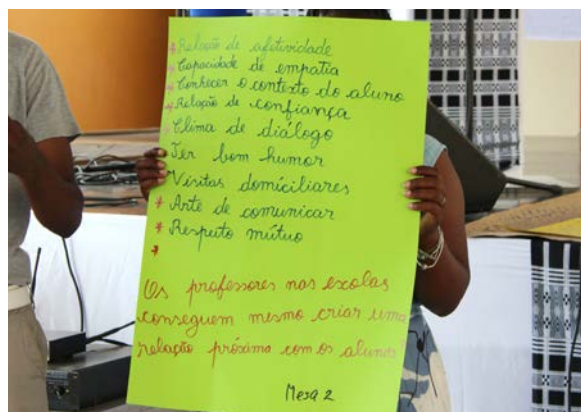 * Relação de afetividade
* Capacidade de empatia
* Conhecer o contexto do aluno
* Relação de confiança
* Clima de diálogo
* Ter bom humor
Visitas domiciliares
* Arte de comunicar
* Respeito mútuo
*
Os professores nas escolas
conseguem mesmo criar uma
relação próxima com os alunos?
Mesa 2